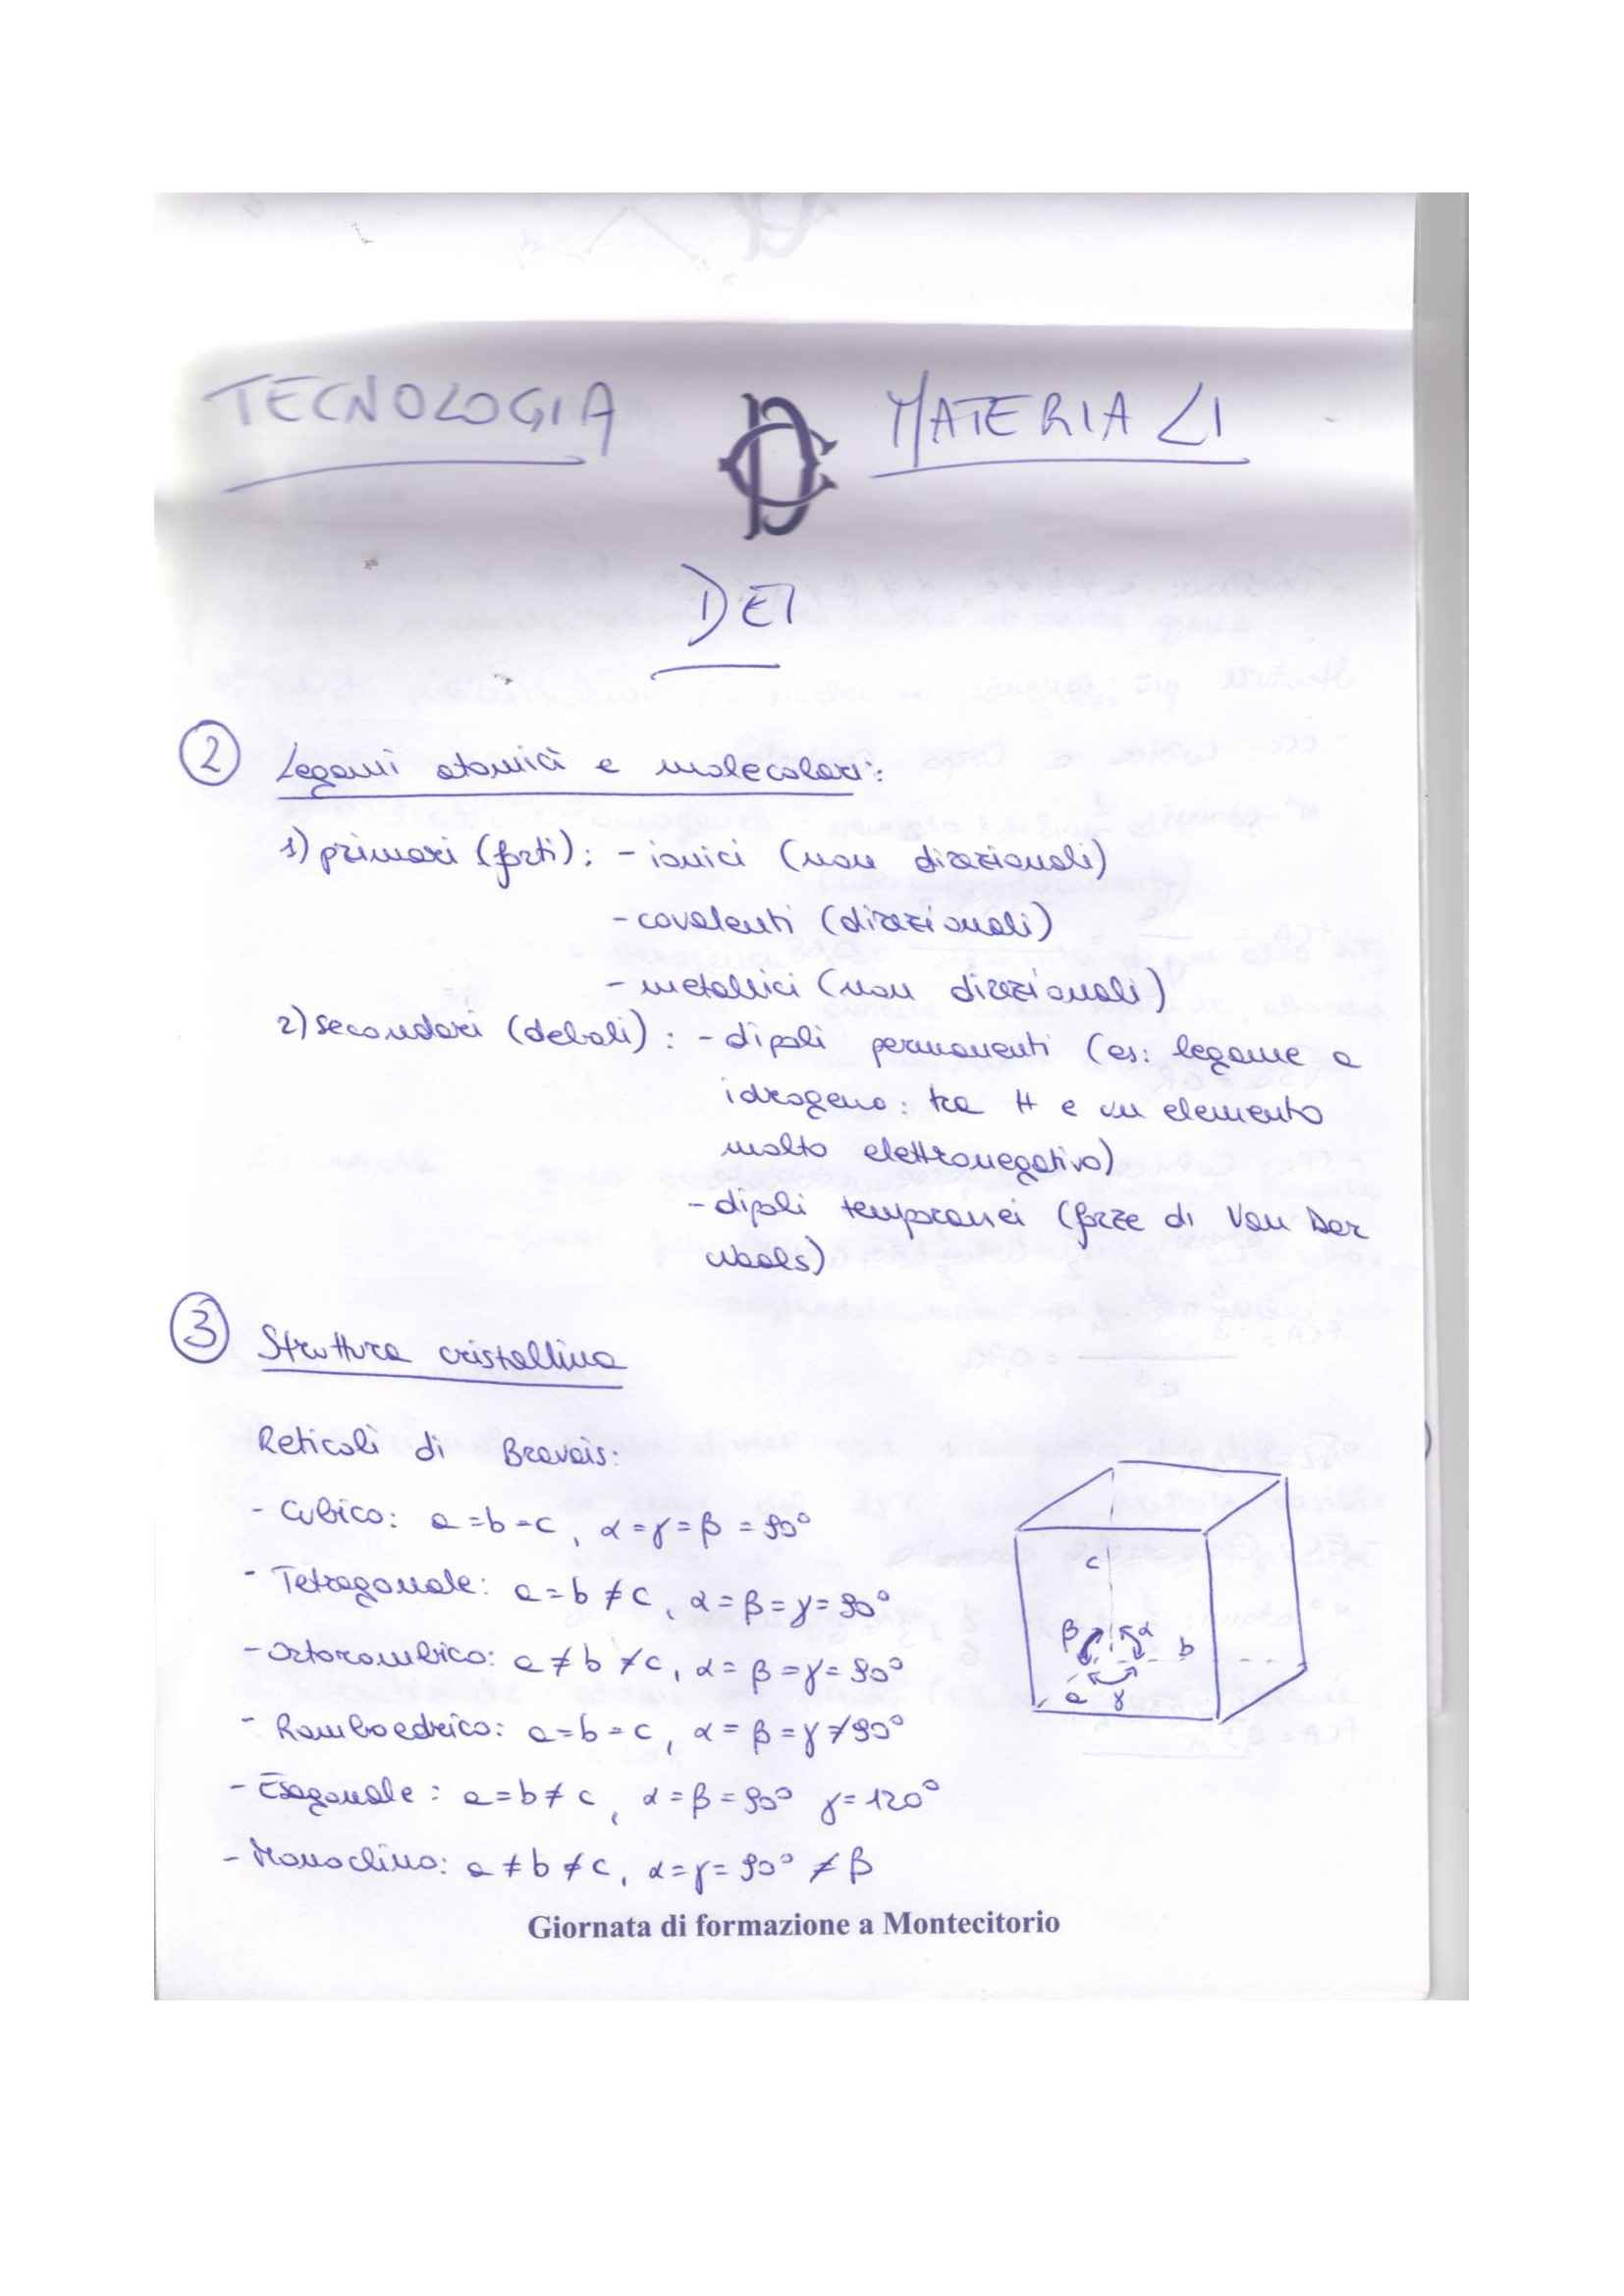 TECNOLOGIA MATERIALI
DEI
2 Legami atomici e molecolari:
1) primari (forti): - ionici (non direzionali)
- covalenti (direzionali)
- metallici (non direzionali)
2) secondari (deboli): - dipoli permanenti (es: legame a
idrogeno: tra H e un elemento
molto elettronegativo)
- dipoli temporanei (forze di Van Der
Waals)
3 Struttura cristallina
Reticoli di Bravais:
- Cubico: a=b=c, α=γ=β=90°
- Tetragonale: a=b≠c, α=β=γ=90°
c
- Ortorombico: a≠b≠c, α=β=γ=90°
β α b
a γ
- Romboedrico: a=b=c, α=β=γ≠90°
- Esagonale: a=b≠c, α=β=90° γ=120°
- Monoclino: a≠b≠c, α=γ=90°≠β
Giornata di formazione a Montecitorio